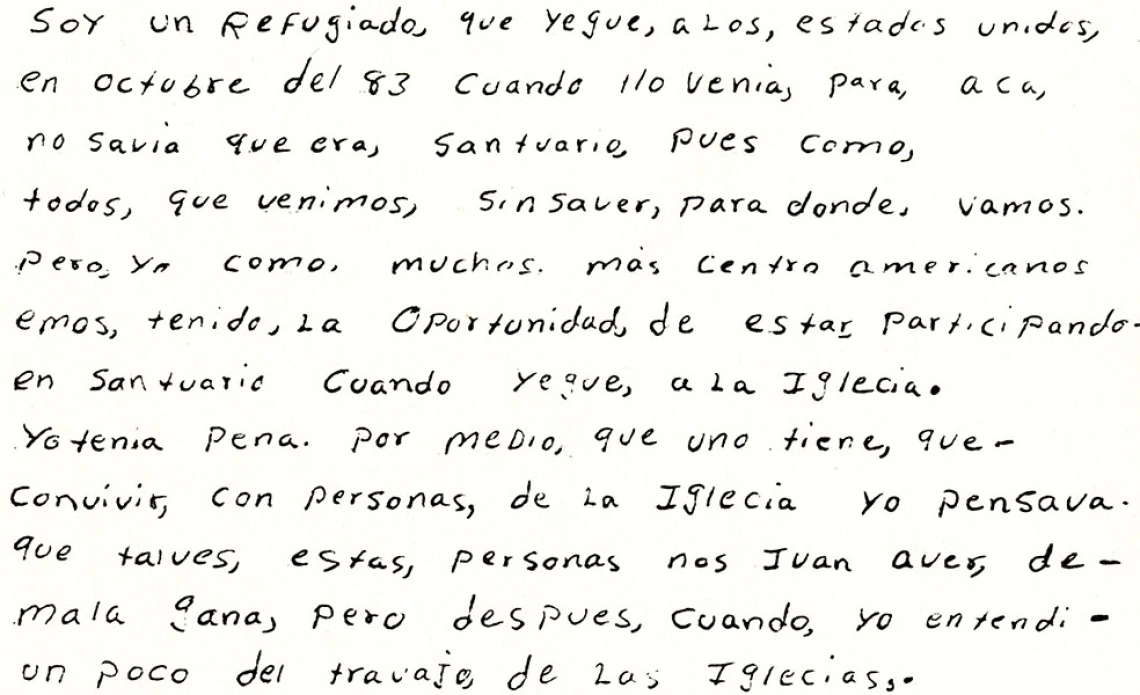 Soy un Refugiado, que yegue, a Los, estados unidos,
en octubre del 83 Cuando llo venia, para, aca,
no savia que era, Santuario, pues como,
todos, que venimos, sin saver, para donde, vamos.
pero, yo como, muchos. más Centro americanos
emos, tenido, La Oportunidad, de estar participando-
en Santuario Cuando yegue, a La Iglecia.
Yo tenia pena. por medio, que uno tiene, que-
Convivir, con personas, de La Iglecia yo pensava.
que talves, estas, personas nos Ivan aver, de-
mala gana, pero despues, cuando, yo entendi-
un poco del travajo, de Las Iglecias,.